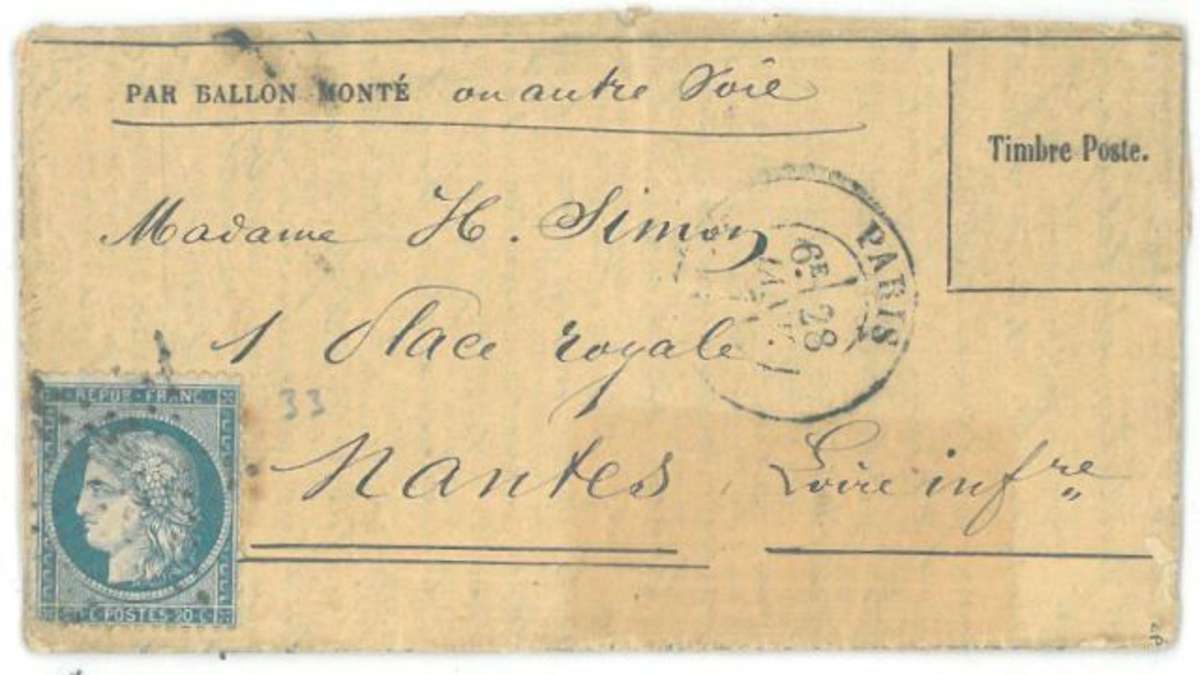 PAR BALLON MONTÉ ou autre Voie
Timbre Poste.
Madame H. Simon
PARIS
6E
28
1 Place royale
33
REPUB · FRANC
Nantes Loire infre
C POSTES 20 C